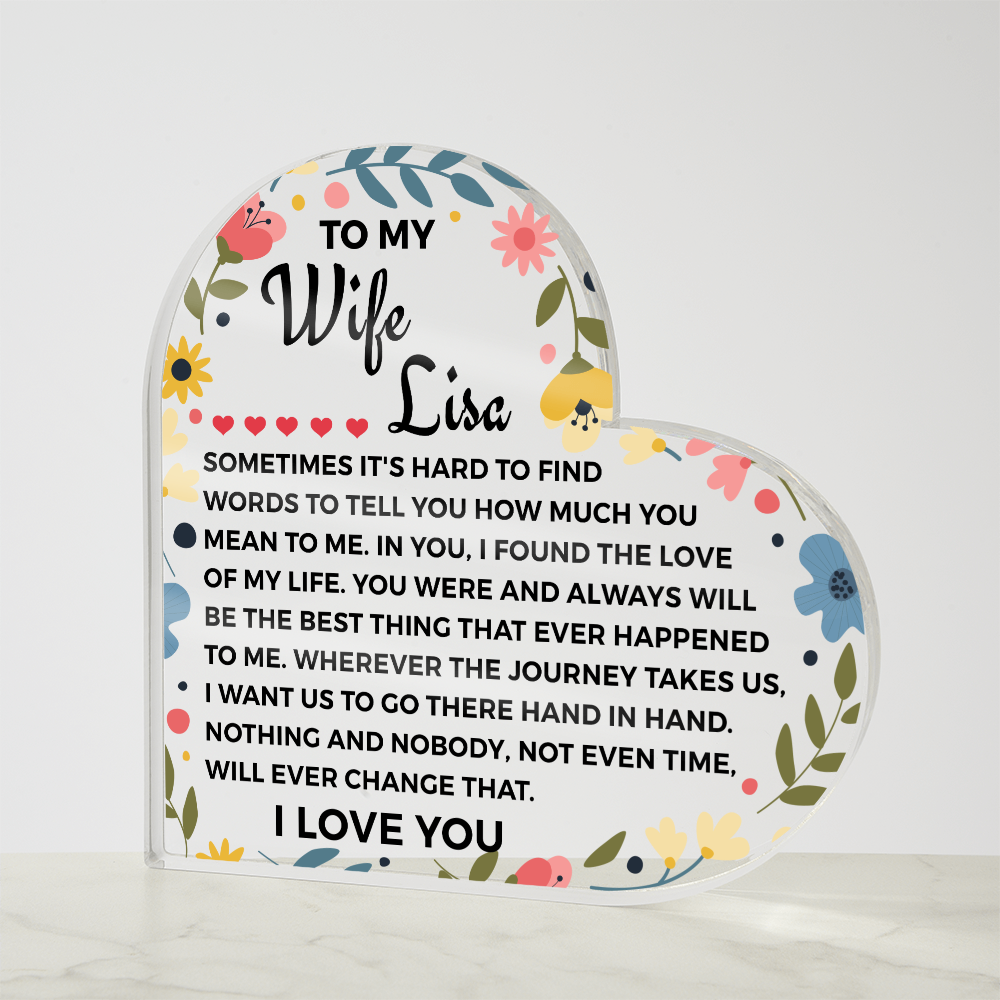 TO MY
Wife
Lisa
SOMETIMES IT'S HARD TO FIND
WORDS TO TELL YOU HOW MUCH YOU
MEAN TO ME. IN YOU, I FOUND THE LOVE
OF MY LIFE. YOU WERE AND ALWAYS WILL
BE THE BEST THING THAT EVER HAPPENED
TO ME. WHEREVER THE JOURNEY TAKES US,
I WANT US TO GO THERE HAND IN HAND.
NOTHING AND NOBODY, NOT EVEN TIME,
WILL EVER CHANGE THAT.
I LOVE YOU